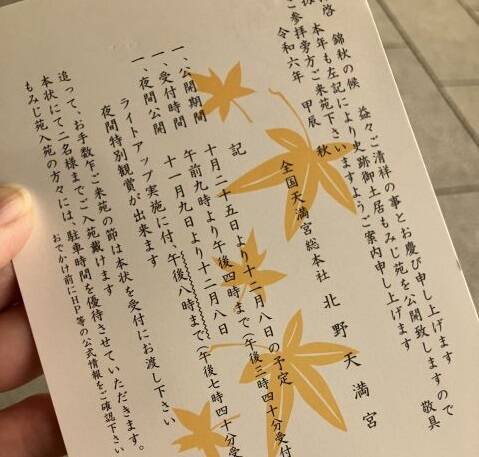 啓 錦秋の候 益々ご清祥の事とお慶び申し上げます
本年も左記により史跡御土居もみじ苑を公開致しますので
ご参拝旁方ご来苑下さいますようご案内申し上げます
敬具
令和六年 甲辰 秋
全国天満宮総本社 北野天満宮
記
一、公開期間 十月二十五日より十二月八日の予定
一、受付時間 午前九時より午後四時まで(午後三時四十分受付
一、夜間公開 十一月九日より十二月八日
ライトアップ実施に付、午後八時まで(午後七時四十分受
夜間特別観賞が出来ます
追って、お手数乍ご来苑の節は本状を受付にお渡し下さい
本状にて二名様までご入苑戴けます
もみじ苑入苑の方々には、駐車時間を優待させていただきます。
おでかけ前にHP等の公式情報をご確認下さい